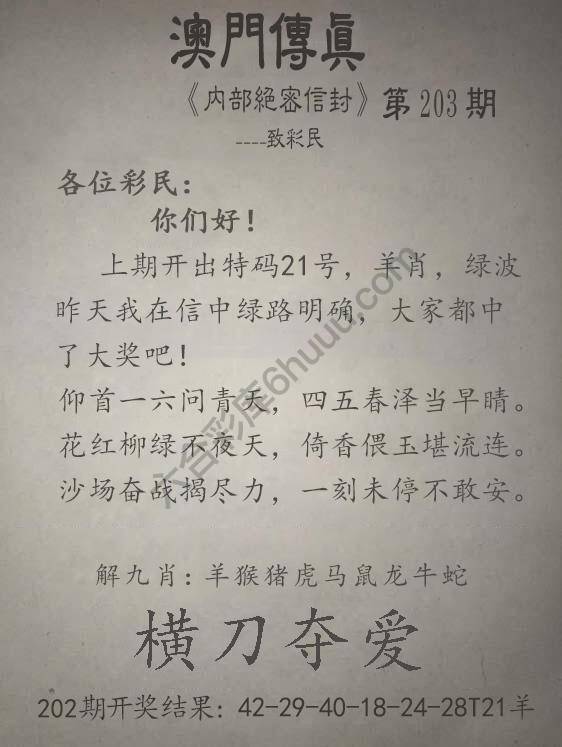 澳門傳眞
《内部絕密信封》第203期
----致彩民
各位彩民：
你们好！
上期开出特码21号，羊肖，绿波
昨天我在信中绿路明确，大家都中
了大奖吧！
仰首一六问青天，四五春泽当早晴。
花红柳绿不夜天，倚香偎玉堪流连。
沙场奋战揭尽力，一刻未停不敢安。
解九肖：羊猴猪虎马鼠龙牛蛇
横刀夺爱
202期开奖结果：42-29-40-18-24-28T21羊
六合彩库6huuu.com